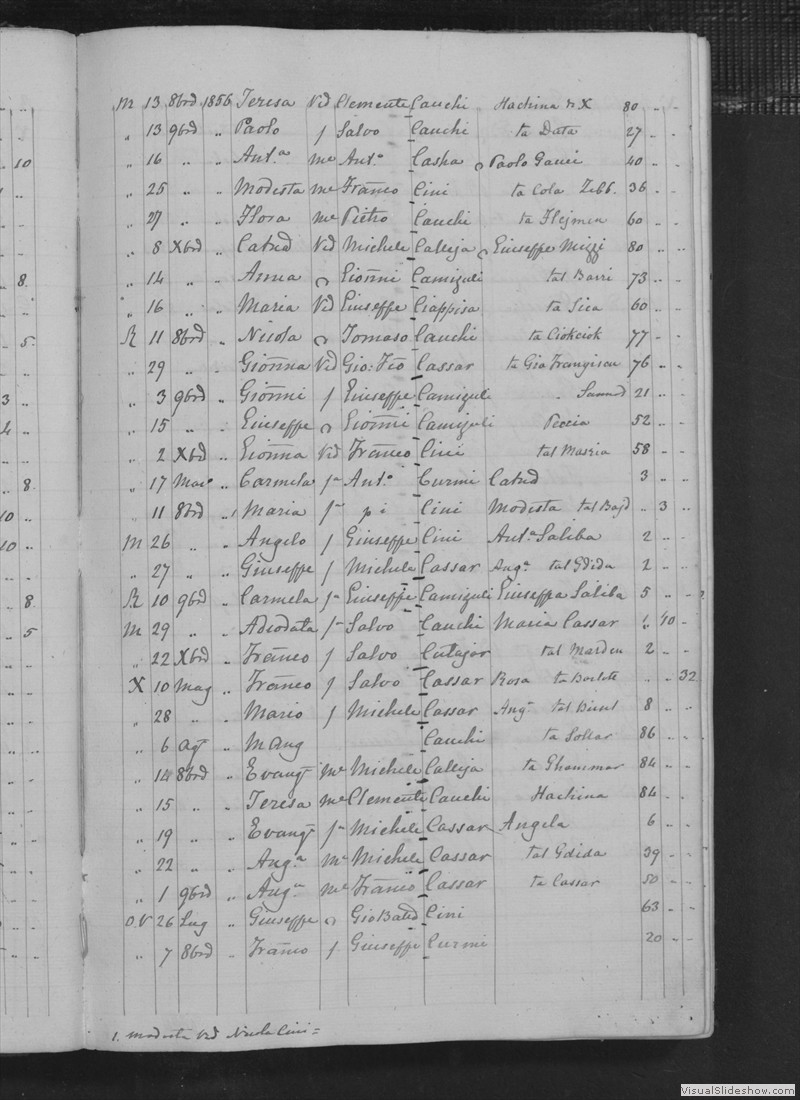 M 13 8brd 1856 Teresa Vid Clemente Cauchi Hachina 80 .. ..
„ 13 9brd „ Paolo f Salvo Cauchi ta Data 27 .. ..
10 „ 16 „ „ Ant.a me Ant.o Casha Paolo Gauci 40 .. ..
„ 25 „ „ Modesta me Franco Cini ta Cola Zebb. 36 .. ..
„ 27 „ „ Flora me Pietro Cauchi ta Flejmen 60 .. ..
„ 8 Xbrd „ Catnd Vid Michele Calleja Giuseppe Mizzi 80 .. ..
8. „ 14 „ „ Anna Gionni Camizuli tal Barri 73 .. ..
„ 16 „ „ Maria Vid Giuseppe Ciappisa ta Sica 60 .. ..
5. R 11 8brd „ Nicola Tomaso Cauchi ta Ciokciok 77 .. ..
„ 29 „ „ Gionna Vid Gio: Fco Cassar ta Gio Frangiscu 76 .. ..
3 „ 3 9brd „ Gionni f Giuseppe Camizuli 21 .. ..
„ 15 „ „ Giuseppe Gionni Camizuli Peccia 52 .. ..
„ 2 Xbd „ Gionna Vid Franco Cini tal Masria 58 .. ..
8. „ 17 Mao „ Carmela f Ant.o Curmi Catnd 3 .. ..
10 „ 11 8brd „ 1 Maria f pi Cini Modesta tal Bajd .. 3 ..
10 M 26 „ „ Angelo f Giuseppe Cini Ant.a Saliba 2 .. ..
„ 27 „ „ Giuseppe f Michele Cassar Ang.a tal Gdida 2 .. ..
8. R 10 9brd „ Carmela f Giuseppe Camizuli Giuseppa Saliba 5 .. ..
5 M 29 „ „ Adeodata f Salvo Cauchi Maria Cassar „ 40 ..
„ 22 Xbrd „ Franco f Salvo Cutajar tal Mardeu 2 ..
X 10 Mag „ Franco f Salvo Cassar Rosa ta .. .. 32
„ 28 „ „ Mario f Michele Cassar Ang.a 8 .. ..
„ 6 Agt „ M Ang Cauchi ta Soltar 86 .. ..
„ 14 8brd „ Evang.a me Michele Calleja ta Ghammar 84 .. ..
„ 15 „ „ Teresa me Clemente Cauchi Hachina 84 .. ..
„ 19 „ „ Evang.a f Michele Cassar Angela 6 .. ..
„ 22 „ „ Ang.a me Michele Cassar tal Gdida 39 .. ..
„ 1 9brd „ Ang.a me Franco Cassar ta Cassar 50 .. ..
O.V 26 Lug „ Giuseppe Gio Batd Cini 63 .. ..
„ 7 8brd „ Franco f Giuseppe Curmi 20 .. ..
1. Modesta Vid Nicola Cini =
VisualSlideshow.com